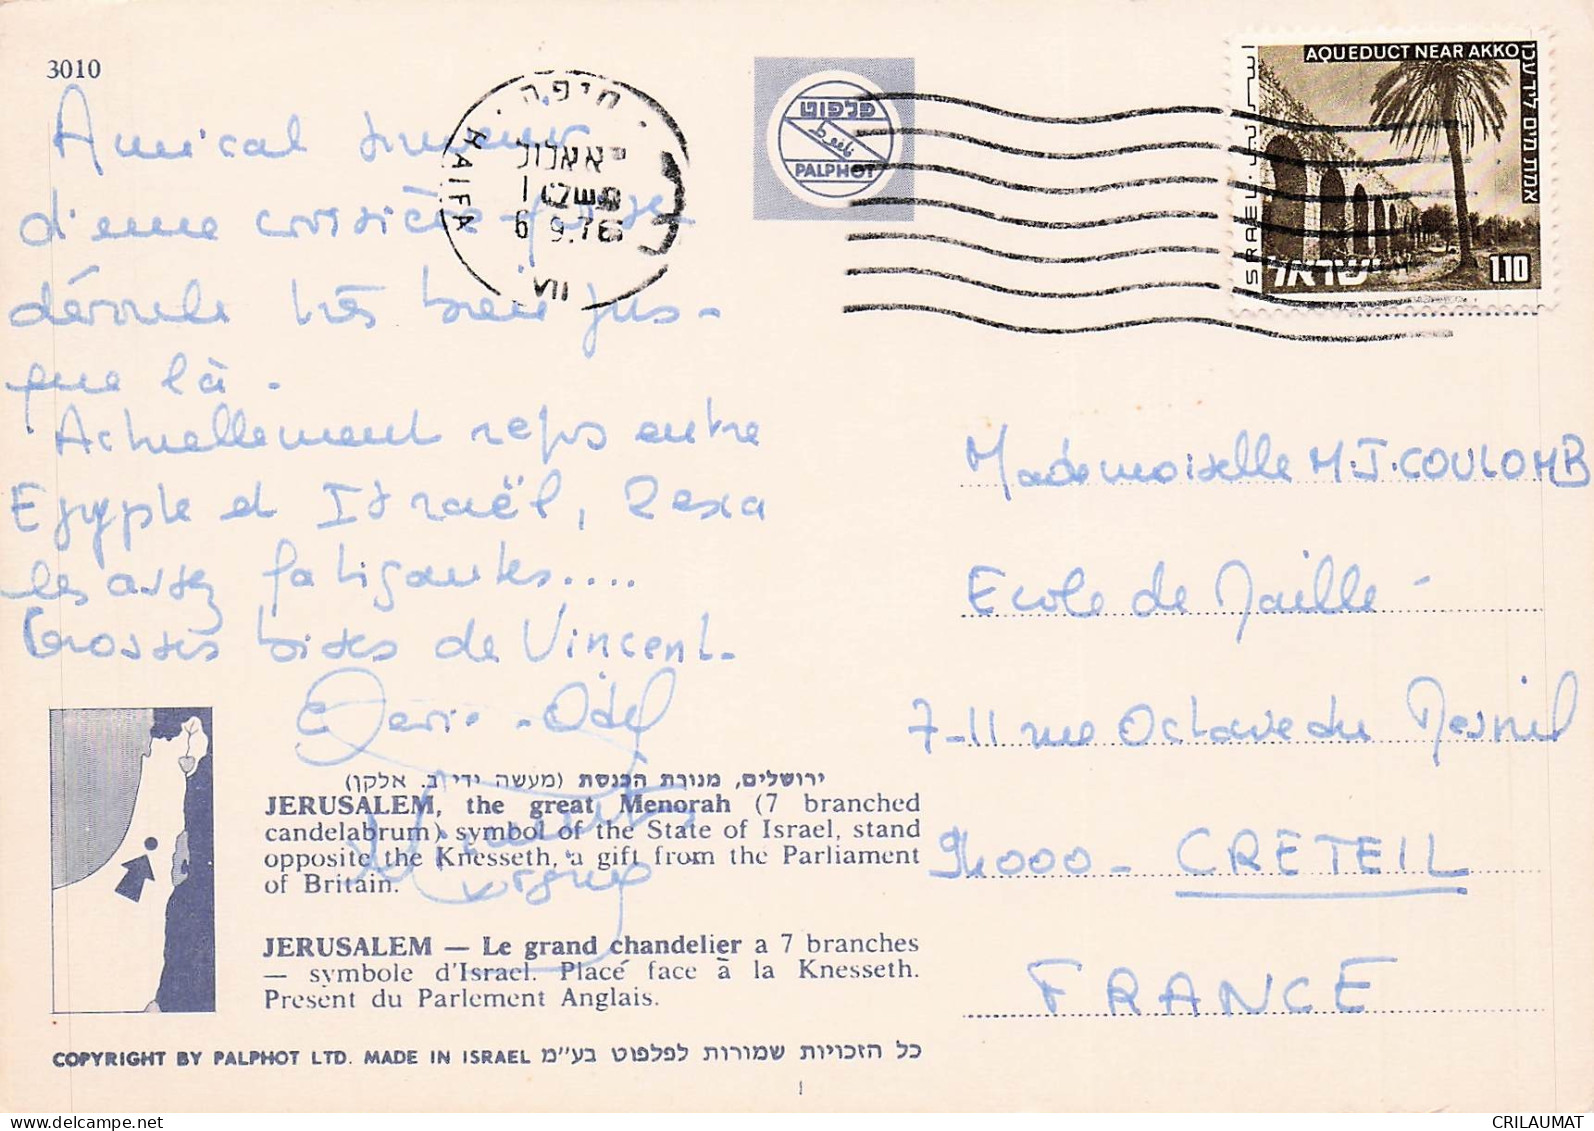 3010
Amical souvenir
d'une croisière qui se
déroule très bien jus-
que là.
Actuellement repos entre
Egypte et Israël, 2 esca
les assez fatigantes....
Grosses bises de Vincent.
Marie-Odile
חיפה
HAIFA
אלול
6.9.76
VII
פלפוט
beeli
PALPHOT
AQUEDUCT NEAR AKKO
אמות מים ליד עכו
ISRAEL
ישראל
1.10
Mademoiselle M.J. COULOMB
Ecole de Maillé
7-11 rue Octave du Mesnil
94000 - CRETEIL
FRANCE
ירושלים, מנורת הכנסת (מעשה ידי ב. אלקן)
JERUSALEM, the great Menorah (7 branched
candelabrum) symbol of the State of Israel, stand
opposite the Knesseth, a gift from the Parliament
of Britain.
JERUSALEM — Le grand chandelier a 7 branches
— symbole d'Israel. Placé face à la Knesseth.
Present du Parlement Anglais.
COPYRIGHT BY PALPHOT LTD. MADE IN ISRAEL כל הזכויות שמורות לפלפוט בע״מ
1
CRILAUMAT